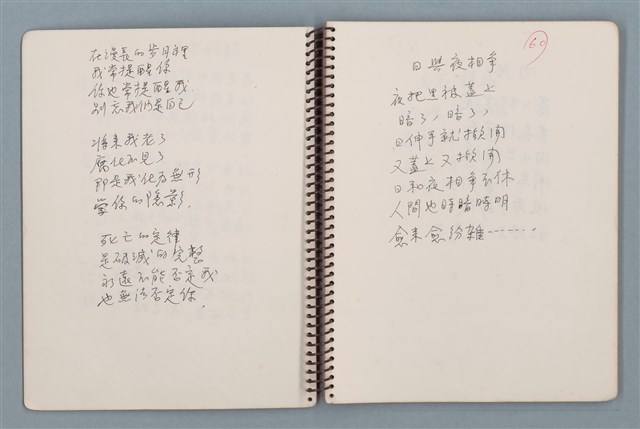 在漫長的歲月裡
我常提醒你
你也常提醒我
別忘我们是自己
將來我老了
腐化不見了
即是我化為無形
當你的隱影.
死亡的定律
是破滅的完整
永遠不能否定我
也無法否定你.
60
日與夜相爭
夜把黑被蓋上
暗了,暗了,
日伸手就掀開
又蓋上又掀開
日和夜相爭不休
人間也時暗時明
愈來愈紛雜……